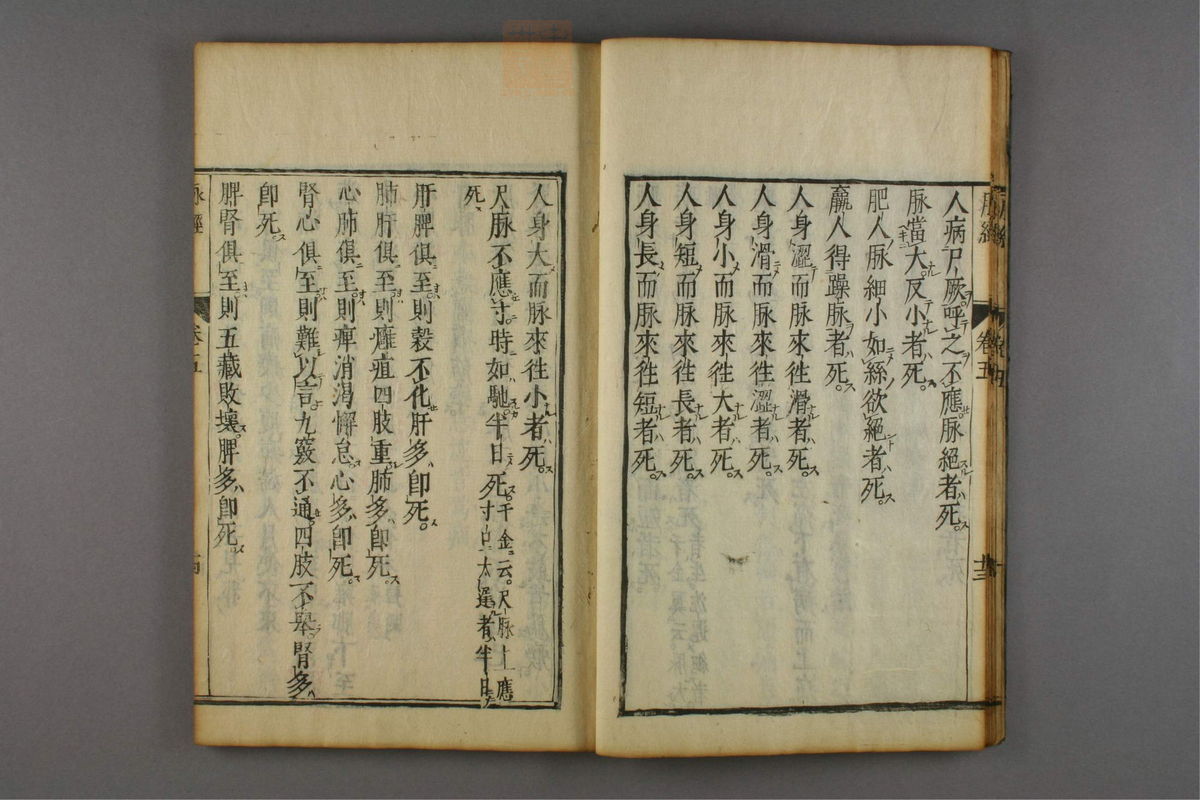 人病尺厥呼之不應脉絕者死
脉當大反小者死
肥人脉細小如絲欲絕者死
羸人得躁脉者死
人身澀而脉來徃滑者死
人身滑而脉來徃澀者死
人身小而脉來徃大者死
人身短而脉來徃長者死
人身長而脉來徃短者死
脉經
卷五
人身大而脉來徃小者死
尺脉不應寸時如馳半日死千金云尺脉上應
寸口太遲者半日
死
肝脾俱至則穀不化肝多卽死
肺肝俱至則癰疽四肢重肺多卽死
心肺俱至則痺消渴懈怠心多卽死
腎心俱至則難以言九竅不通四肢不舉腎多
卽死
脾腎俱至則五藏敗壞脾多卽死
脉經